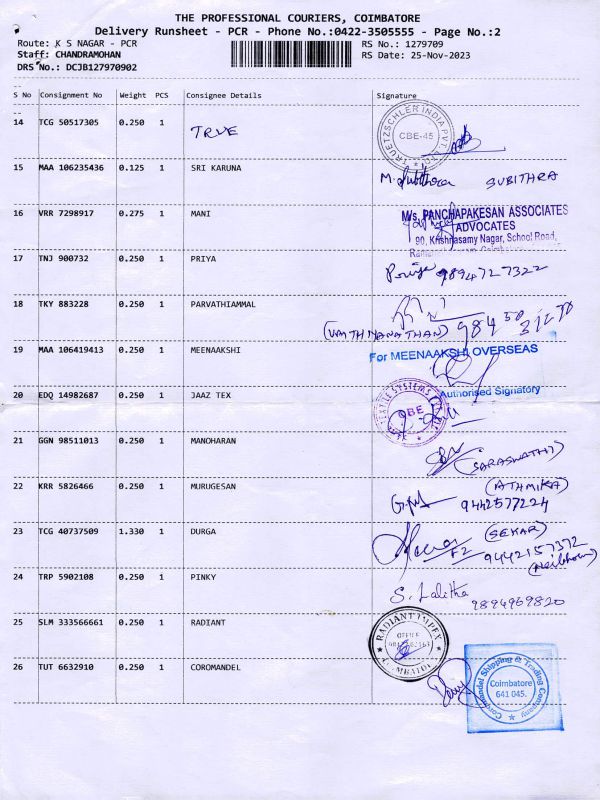 THE PROFESSIONAL COURIERS, COIMBATORE
Delivery Runsheet - PCR - Phone No.:0422-3505555 - Page No.:2
Route: K S NAGAR - PCR
RS No.: 1279709
Staff: CHANDRAMOHAN
RS Date: 25-Nov-2023
DRS No.: DCJB127970902
S No Consignment No Weight PCS Consignee Details Signature
14 TCG 50517305 0.250 1 TRUE
TRUETZSCHLER INDIA PVT. LTD. CBE-45
15 MAA 106235436 0.125 1 SRI KARUNA M. Subithra SUBITHRA
16 VRR 7298917 0.275 1 MANI M/s. PANCHAPAKESAN ASSOCIATES
ADVOCATES
90, Krishnasamy Nagar, School Road,
17 TNJ 900732 0.250 1 PRIYA Priya 9894727322
18 TKY 883228 0.250 1 PARVATHIAMMAL
(VAITHIYANATHAN) 984
19 MAA 106419413 0.250 1 MEENAAKSHI For MEENAAKSHI OVERSEAS
Authorised Signatory
20 EDQ 14982687 0.250 1 JAAZ TEX
TEXTILE SYSTEMS CBE
21 GGN 98511013 0.250 1 MANOHARAN
(SARASWATHI)
22 KRR 5826466 0.250 1 MURUGESAN (ATHMIKA)
9442577224
23 TCG 40737509 1.330 1 DURGA (SEKAR)
F2 9442157372
(Neibhour)
24 TRP 5902108 0.250 1 PINKY S. Lalitha
9894969820
25 SLM 333566661 0.250 1 RADIANT RADIANT IMPEX
OFFICE
26 TUT 6632910 0.250 1 COROMANDEL
Coromandel Shipping & Trading Company
Coimbatore
641 045.